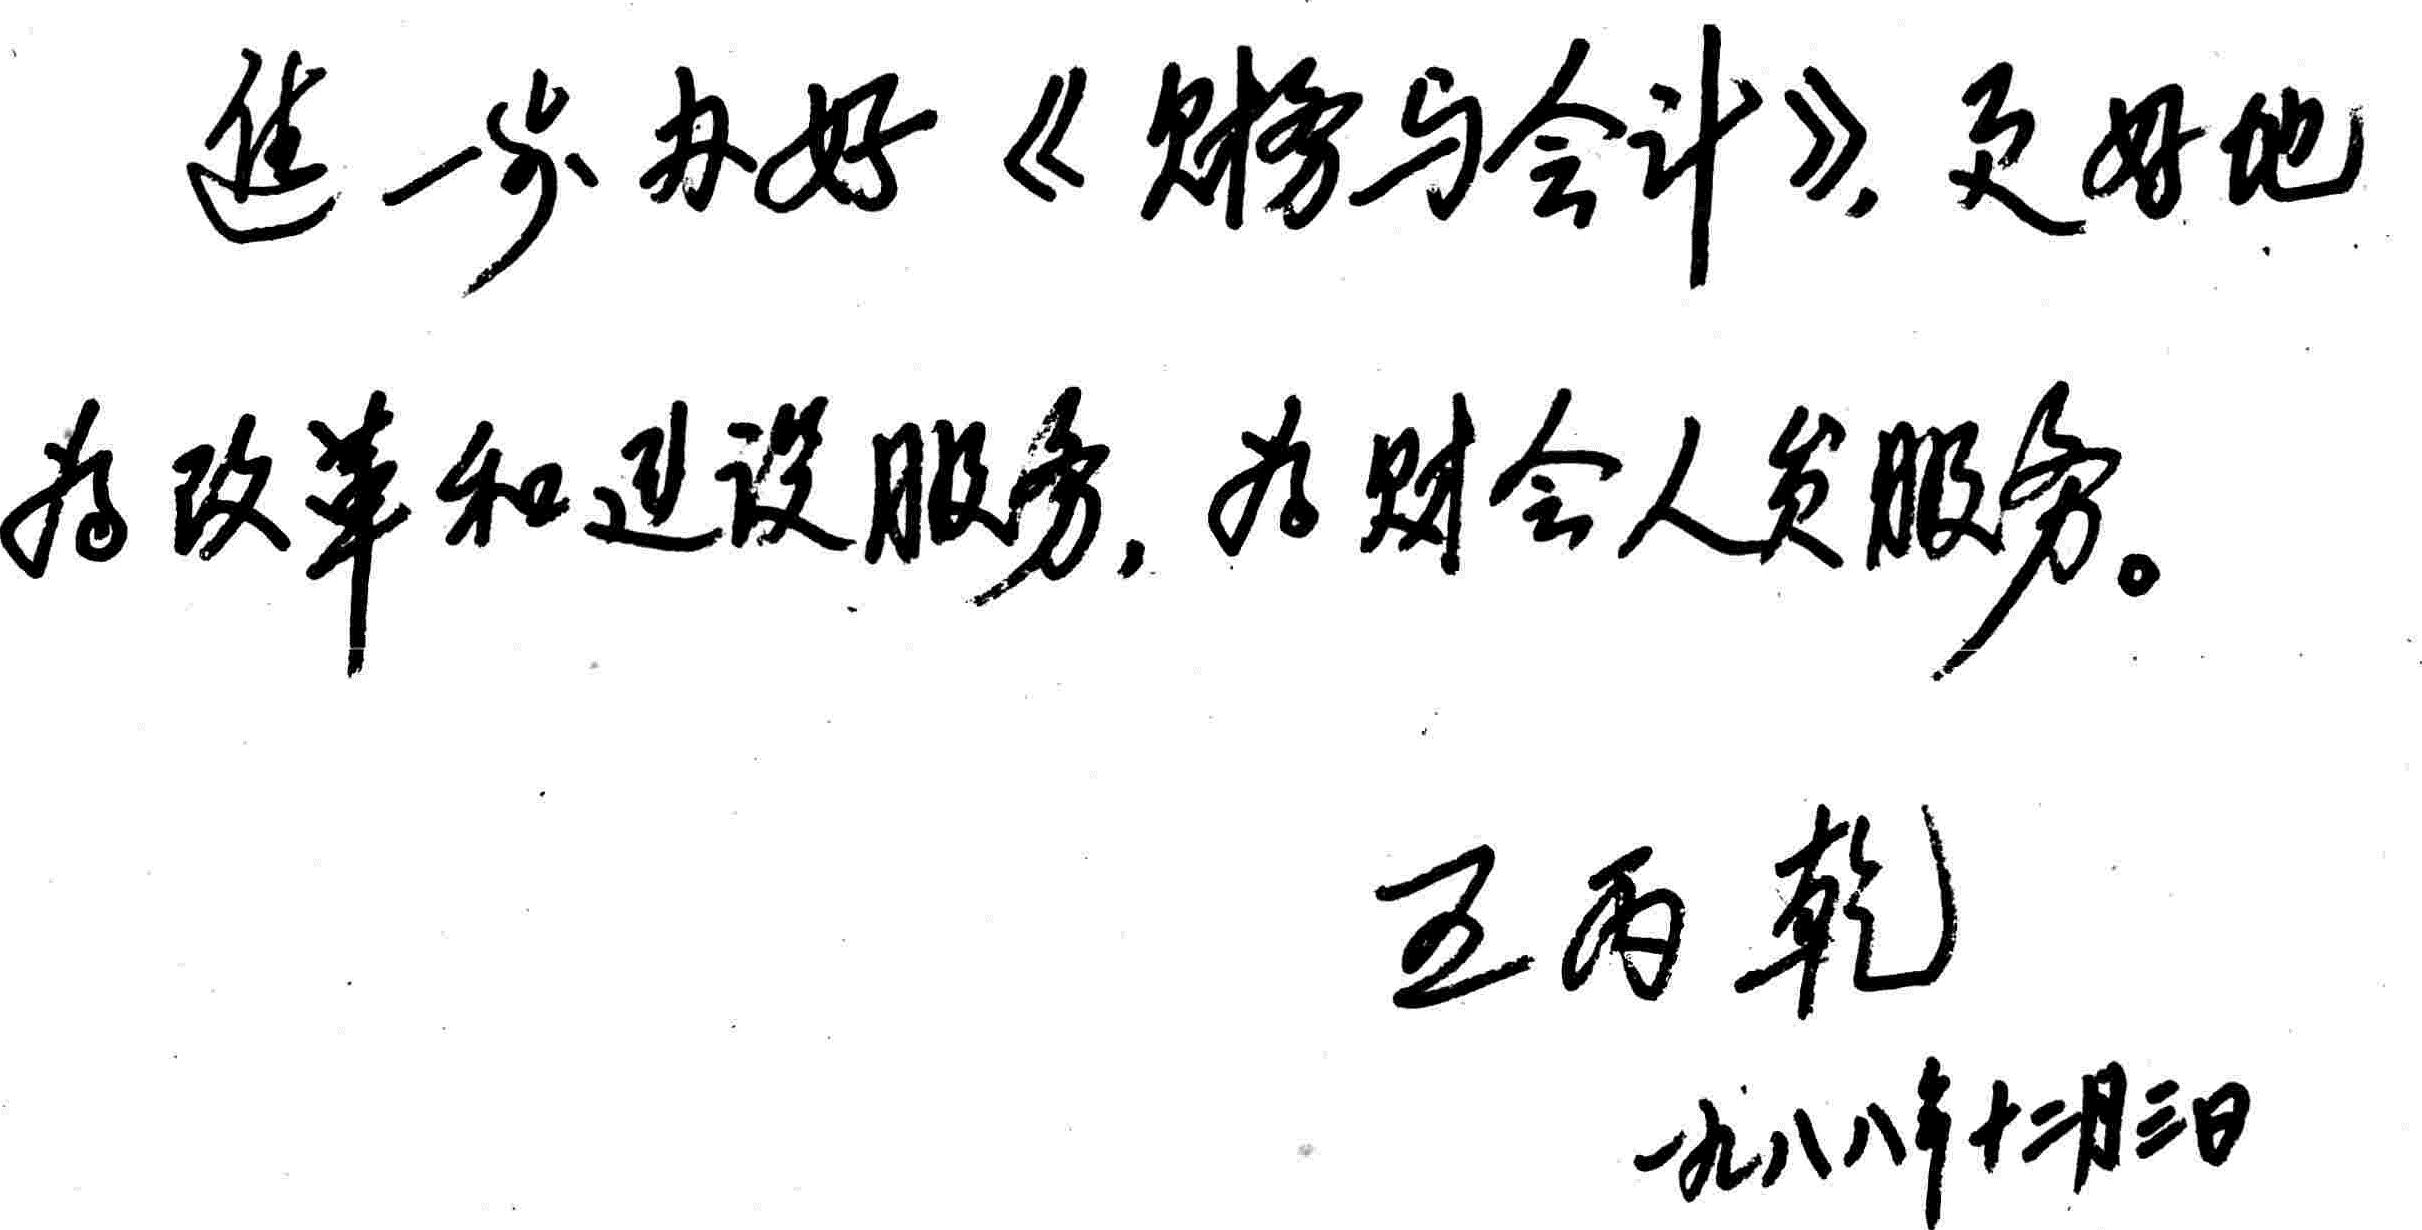 进一步办好《财务与会计》，更好地
为改革和建设服务，为财会人员服务。
王丙乾
一九八八年十二月三日